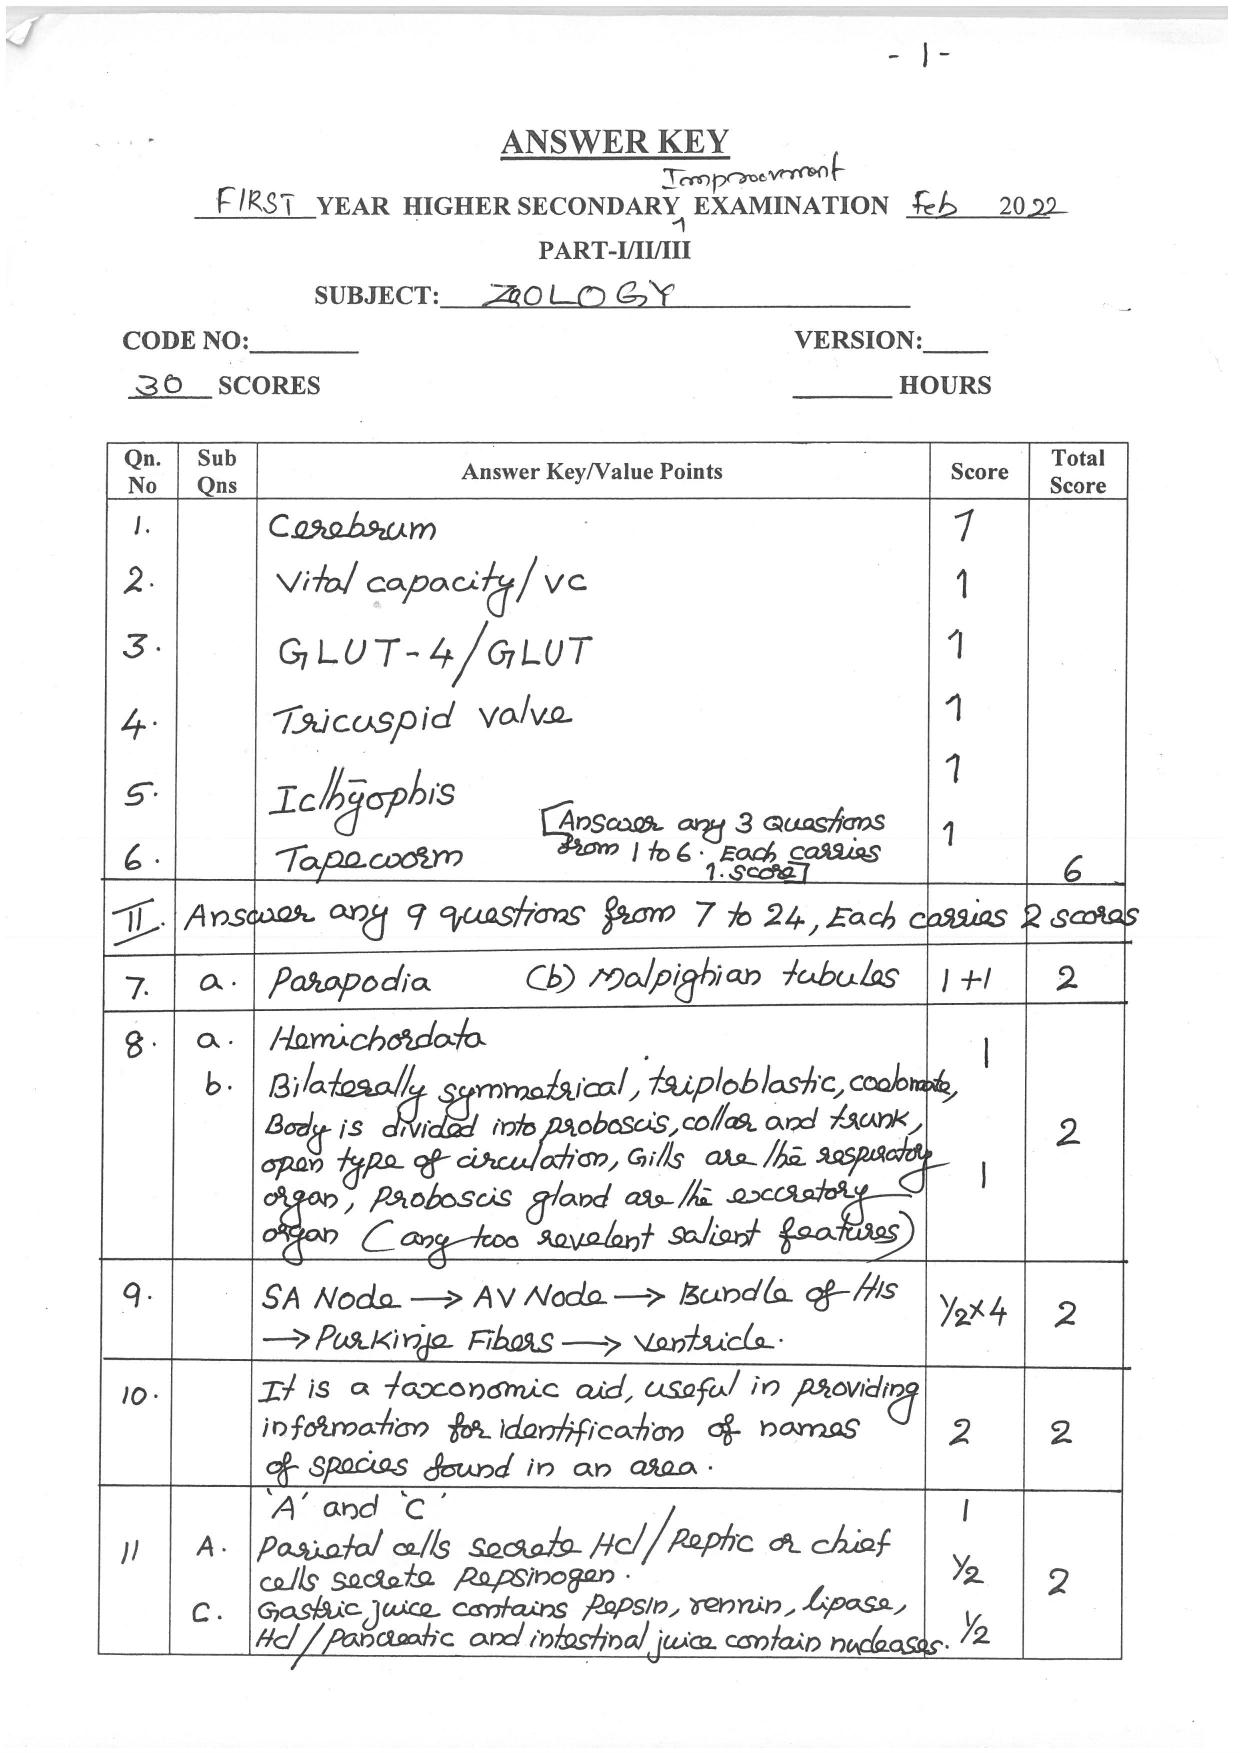 - 1 -
ANSWER KEY
Improvement
FIRST YEAR HIGHER SECONDARY EXAMINATION Feb 2022
PART-I/II/III
SUBJECT: ZOOLOGY
CODE NO:________ VERSION:_____
30 SCORES ________ HOURS
Qn. No Sub Qns Answer Key/Value Points Score Total Score
1. Cerebrum 1
2. Vital capacity/VC 1
3. GLUT-4/GLUT 1
4. Tricuspid valve 1
5. Icthyophis 1
[Answer any 3 Questions
from 1 to 6. Each carries
1. score]
6. Tapeworm 1 6
II. Answer any 9 questions from 7 to 24, Each carries 2 scores
7. a. Parapodia (b) Malpighian tubules 1+1 2
8. a. Hemichordata 1
b. Bilaterally symmetrical, triploblastic, coelomate,
Body is divided into proboscis, collar and trunk, 2
open type of circulation, Gills are the respiratory 1
organ, proboscis gland are the excretory
organ (any two revelent salient features)
9. SA Node → AV Node → Bundle of His ½×4 2
→ Purkinje Fibers → Ventricle.
10. It is a taxonomic aid, useful in providing
information for identification of names 2 2
of species found in an area.
'A' and 'C' 1
11 A. Parietal cells secrete Hcl/Peptic or chief
cells secrete Pepsinogen. ½ 2
C. Gastric juice contains Pepsin, rennin, lipase,
Hcl/Pancreatic and intestinal juice contain nucleases. ½